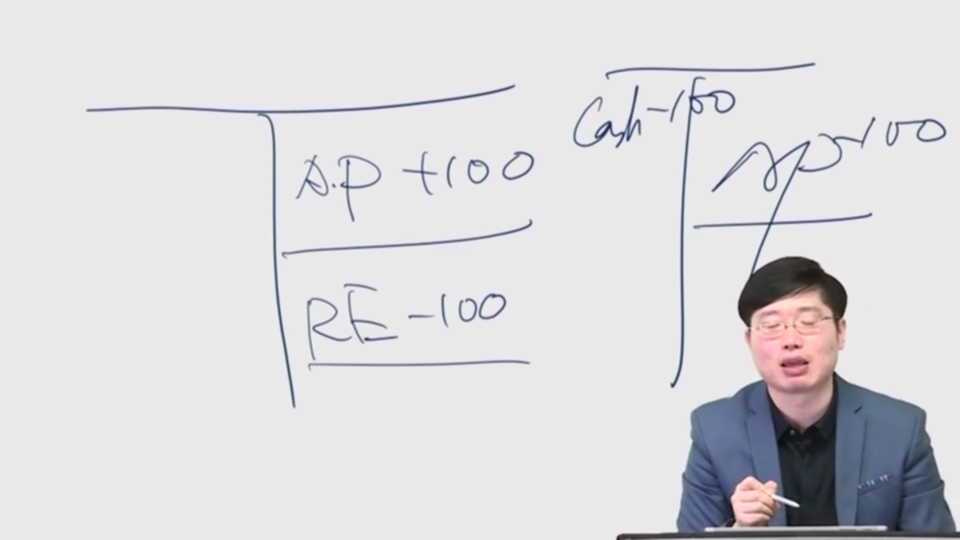 A.P +100
RE -100
Cash -100
AP -100